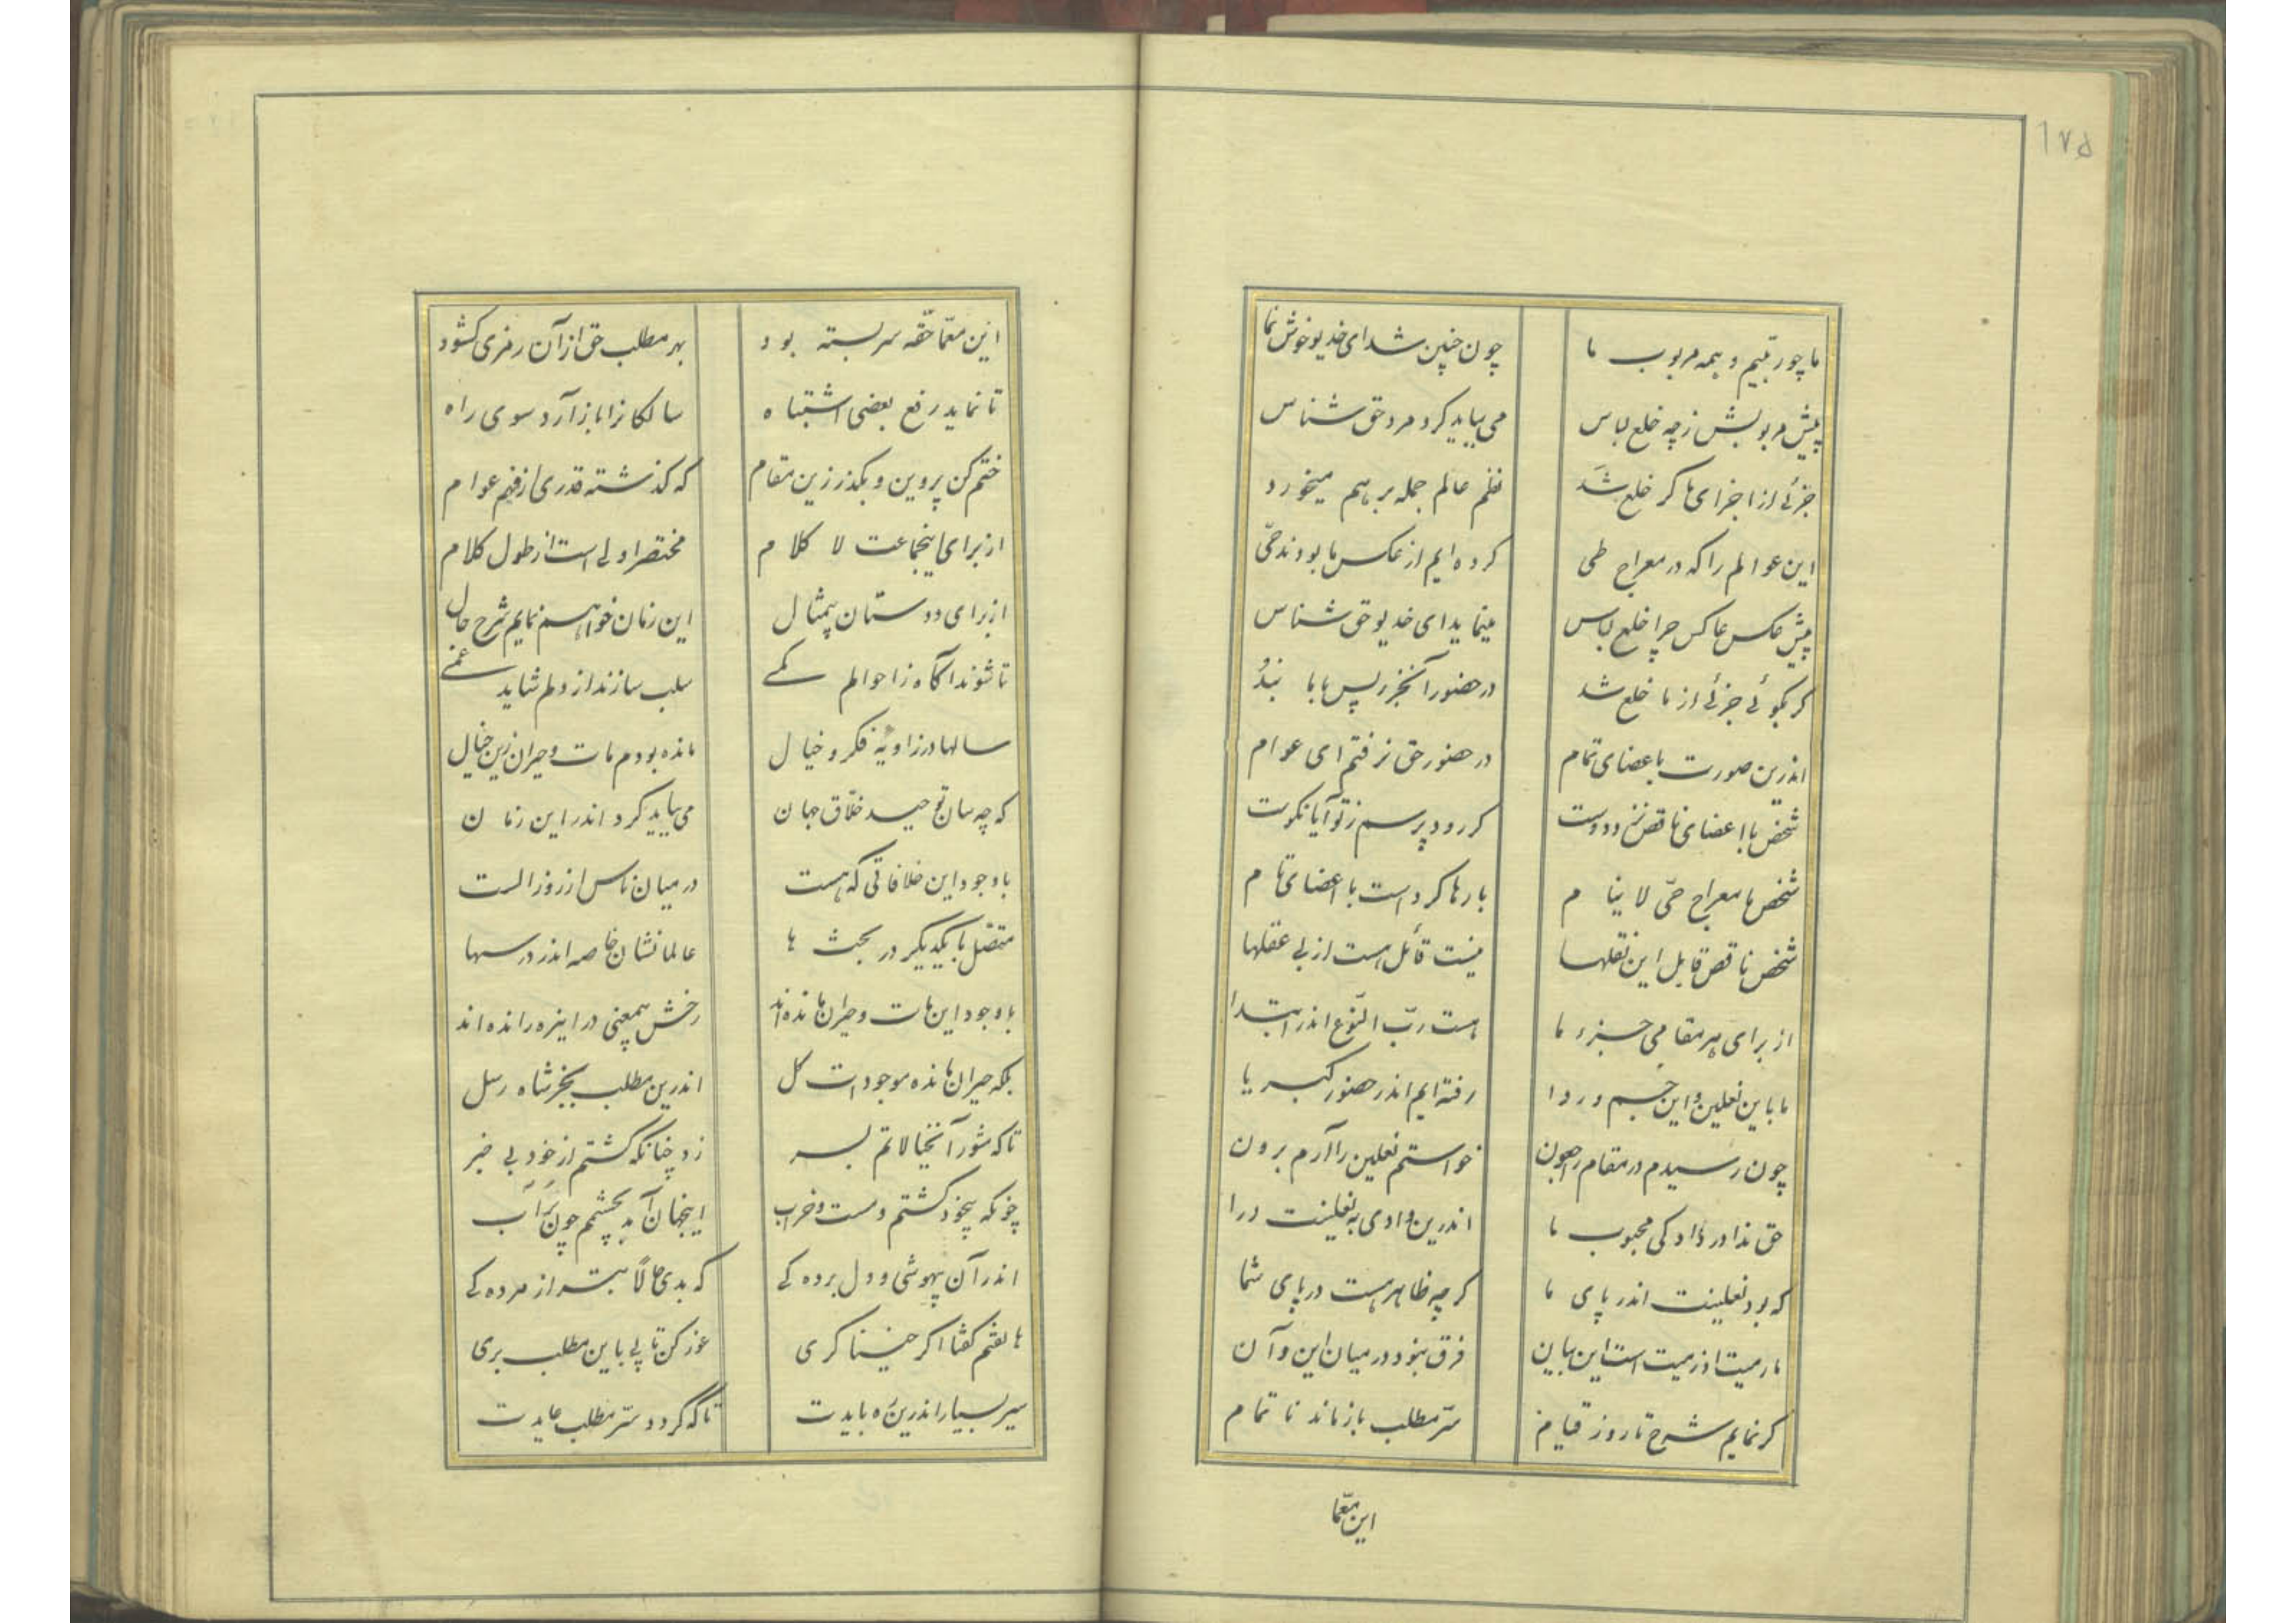 ۱۷۵
ما چو ربّیم و همه مربوب ما چون چنین شد ای خدیو خوش نما
پیش مربوبش ز چه خلع لباس می بباید کرد مرد حق شناس
جزئی از اجزای ما گر خلع شد نظم عالم جمله بر هم میخورد
این عوالم را که در معراج طی کرده ایم از عکس ما بودند حیّ
پیش عکس عاکس چرا خلع لباس مینماید ای خدیو حق شناس
گر بگوئی جزئی از ما خلع شد در حضور آنجزء پس با ما نبُد
اندرین صورت باعضای تمام در حضور حق نرفتم ای عوام
شخص با اعضای ناقص نزد دوست گر رود پرسم ز تو آیا نکوست
شخص ما معراج حیّ لا ینام بارها کرد است با اعضای تام
شخص ناقص قابل این نقلها نیست قائل هست از بی عقلها
از برای هر مقامی جزء ما هست ربّ النّوع اندر ابتدا
ما باین نعلین و این جسم و ردا رفته ایم اندر حضور کبریا
چون رسیدم در مقام راجعون خواستم نعلین را آرم برون
حق ندا در داد کی محبوب ما اندرین وادی به نعلینت درا
که بود نعلینت اندر پای ما گرچه ظاهر هست در پای شما
ما رمیت اذ رمیت است این بیان فرق نبود در میان این و آن
گر نمایم شرح تا روز قیام سرّ مطلب باز ماند نا تمام
این معمّا
این معمّا حقّه سربسته بود بهر مطلب حق از آن رمزی گشود
تا نماید رفع بعضی اشتباه سالکانرا باز آرد سوی راه
ختم کن پروین و بگذر زین مقام که گذشته قدری از فهم عوام
از برای اینجماعت لا کلام مختصر اولی است از طول کلام
از برای دوستان بیمثال این زمان خواهم نمایم شرح حال
تا شوند آگاه ز احوالم کمے سلب سازند از دلم شاید غمے
سالها در زاویهٔ فکر و خیال مانده بودم مات و حیران زین خیال
که چه سان توحید خلّاق جهان می بباید کرد اندر این زمان
با وجود این خلافاتی که هست در میان ناس از روز الست
متّصل با یکدیگر در بحث ها عالمانشان خاصه اندر درسها
با وجود این مات و حیران مانده اند رخش بیمعنی در اینره رانده اند
بلکه حیران مانده موجودات کل اندرین مطلب بجز شاه رسل
تا که شور آنخیالاتم بسر زد چنانکه گشتم از خود بی خبر
چونکه بیخود گشتم و مست و خراب اینجهان آمد بچشمم چون سَراب
اندر آن بیهوشی و دل برده گی که بدی حالاً بتر از مرده گی
هاتفم گفتا اگر حق بنگری غور کن تا پی باین مطلب بری
سیر بسیار اندرین ره بایدت تا که گردد سرّ مطلب عایدت